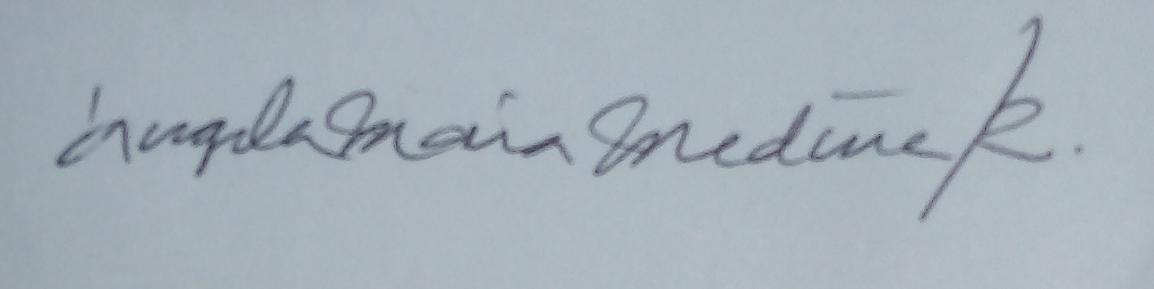 Angela Maria Medina R.